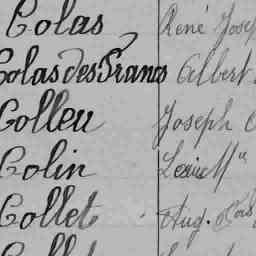 Colas René Josep
Colas des Francs Albert
Colleu Joseph
Colin
Collet Aug.